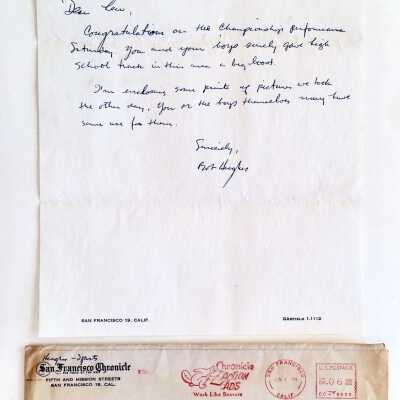 Dear Lew,
Congratulations on the Championship performance
Saturday. You and your boys surely gave high
school track in this area a big boost.
I'm enclosing some prints of pictures we took
the other day. You or the boys themselves may have
some use for them.
Sincerely,
Bob Hughes
SAN FRANCISCO 19, CALIF.
GARFIELD 1-1112
Hughes - Sports
San Francisco Chronicle
FIFTH AND MISSION STREETS
SAN FRANCISCO 19, CAL.
Chronicle
ACTION
ADS
Work Like Beavers
SAN FRANCISCO
CALIF.
U.S. POSTAGE